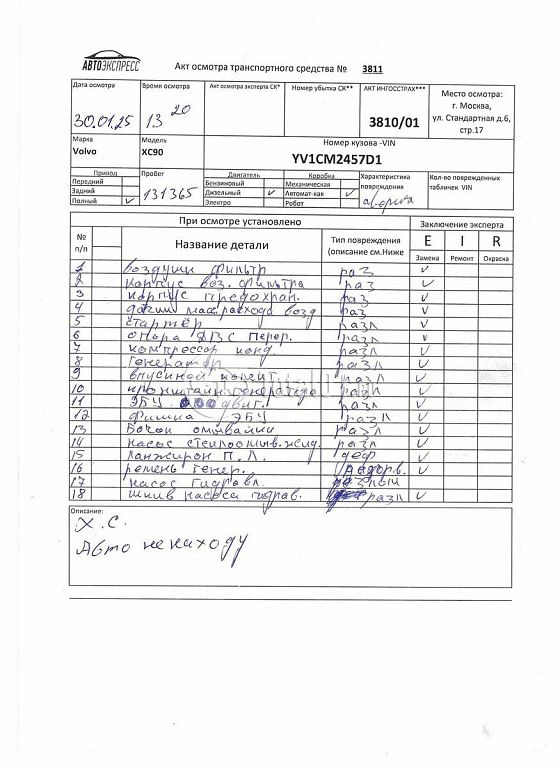 АВТОЭКСПРЕСС
Акт осмотра транспортного средства № 3811
Дата осмотра Время осмотра Акт осмотра эксперта СК* Номер убытка СК** АКТ ИНГОССТРАХ*** Место осмотра:
г. Москва,
30.01.25 13 20 3810/01 ул. Стандартная д.6,
стр.17
Марка Модель Номер кузова -VIN
Volvo XC90 YV1CM2457D1
Привод Пробег Двигатель Коробка Характеристика повреждения Кол-во поврежденных табличек VIN
Передний Бензиновый Механическая
Задний 131365 Дизельный ✓ Автомат-кая ✓
Полный ✓ Электро Робот
При осмотре установлено Заключение эксперта
№ п/п Название детали Тип повреждения (описание см.Ниже E I R
Замена Ремонт Окраска
1 воздушн фильтр раз ✓
2 корпус воз. фильтра раз ✓
3 корпус предохран. раз ✓
4 датчик мас. расхода возд раз ✓
5 стартёр разл ✓
6 опора ДВС перед. разл ✓
7 компрессор конд. разл ✓
8 Генератор разл ✓
9 впускной разл ✓
10 кронштейн генератора разл ✓
11 ЭБУ двиг. разл ✓
12 Фишка ЭБУ разл ✓
13 Бочок омывайки разл ✓
14 насос разл ✓
15 Ланжирон П.Л. деф ✓
16 ремень генер. ✓
17 насос гидравл.
18 шкив насоса гидрав. разл ✓
Описание:
Х.С.
Авто не на ходу